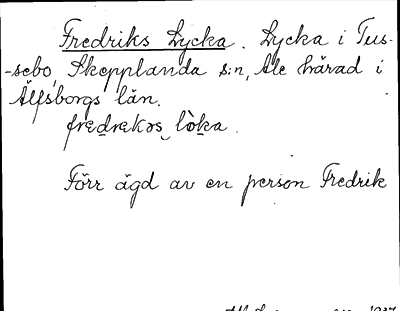 Fredriks Lycka. Lycka i Tus-
-sebo, Skepplanda s:n, Ale härad i
Älfsborgs län.
fredrekos lòka.
Förr ägd av en person Fredrik